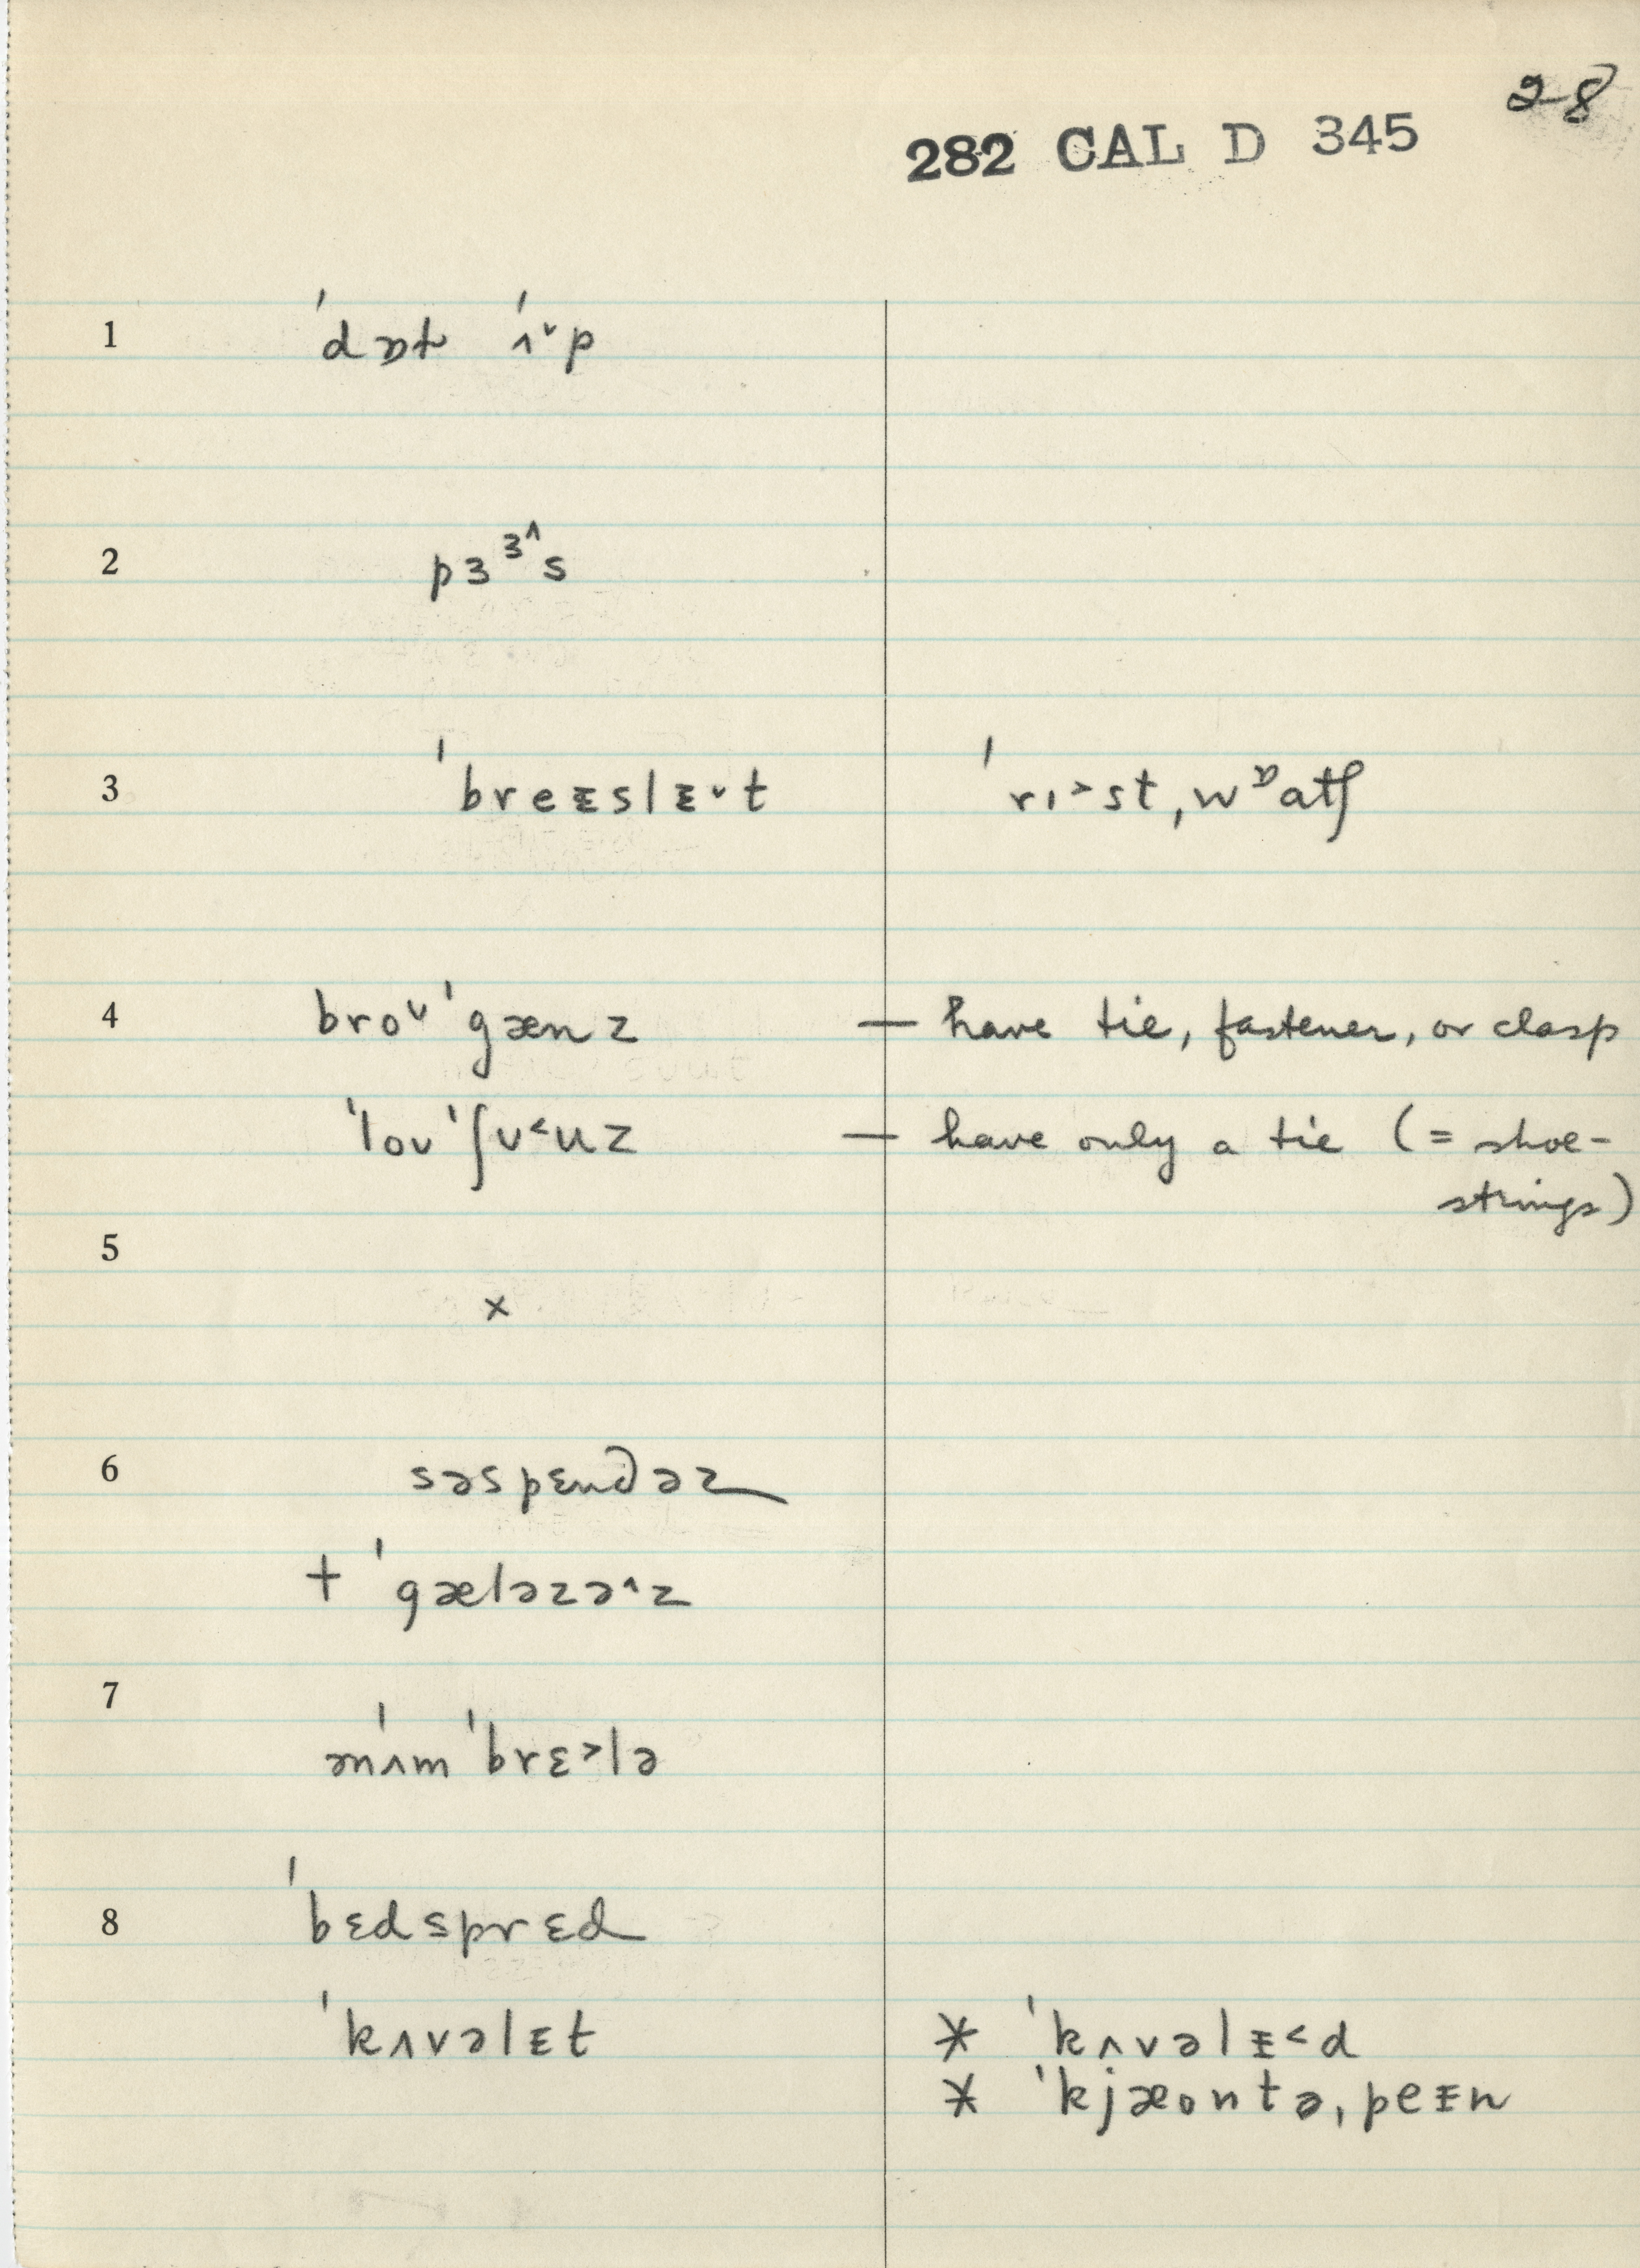 28
282 CAL D 345
1 ˈdɒt ˈʌ˅p
2 pɜᶾ^s
3 ˈbreᵻslᵻ˅t ˈrɪ˃st,wᶛatʃ
4 broᴜˈgænz — have tie, fastener, or clasp
ˈloᴜˈʃᴜ˂uz — have only a tie (= shoe-
strings)
5
×
6 səspɛndəz
+ ˈgæləzə^z
7 ənˈʌmˈbrɛ˃lə
8 ˈbɛdsprɛd
ˈkʌvəlᵻt * ˈkʌvəlᵻ˂d
* ˈkjæontə,peᵻn